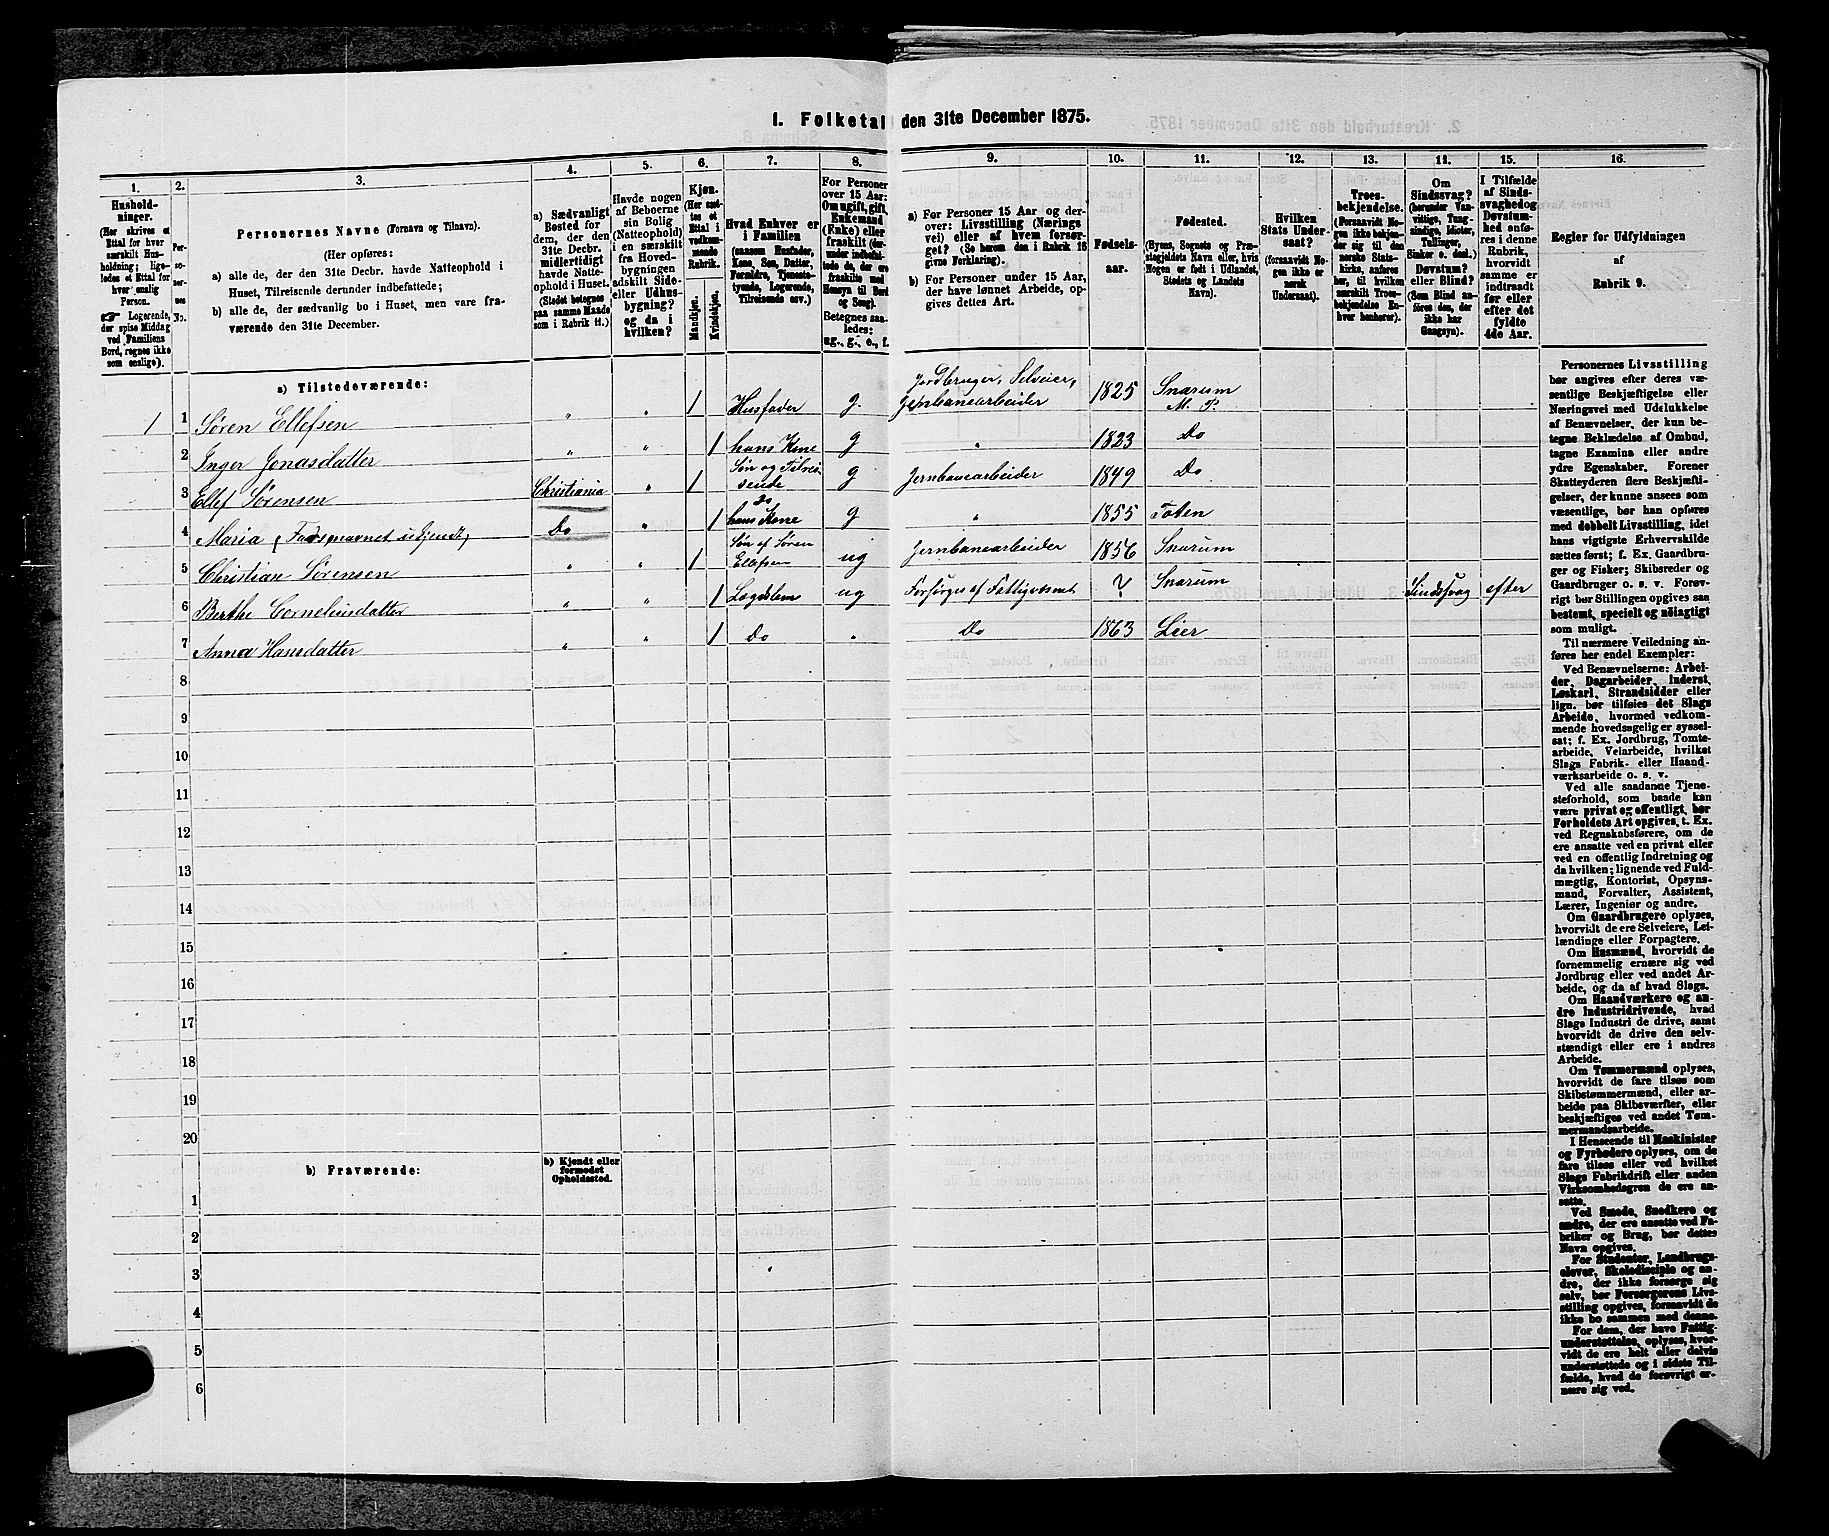 1. Folketal den 31te December 1875.
1.
2.
3.
4.
5.
6.
7.
8.
9.
10.
11.
12.
13.
14.
15.
16.
Hushold-
ninger.
(Her skrives et
Ettal for hver
særskilt Hus-
holdning; lige-
ledes et Ettal for
hver enslig
Person.
☞ Logerende,
der spise Middag
ved Familiens
Bord, regnes ikke
som enslige).
Per-
so-
ner-
nes
No.
Personernes Navne (Fornavn og Tilnavn).
(Her opføres:
a) alle de, der den 31te Decbr. havde Natteophold i
Huset, Tilreisende derunder indbefattede;
b) alle de, der sædvanlig bo i Huset, men vare fra-
værende den 31te December.
a) Sædvanligt
Bosted for
dem, der den
31te Decbr.
midlertidigt
havde Natte-
ophold i Huset.
(Stedet betegnes
paa samme Maade
som i Rubrik 11.)
Havde nogen
af Beboerne
sin Bolig
(Natteophold)
i en særskilt
fra Hoved-
bygningen
adskilt Side-
eller Udhus-
bygning?
og da i
hvilken?
Kjøn.
(Her sæt-
tes et
Ettal i
vedkom-
mende
Rubrik.
Mandkjøn.
Kvindekjøn.
Hvad Enhver er
i Familien
(saasom Husfader,
Kone, Søn, Datter,
Forældre, Tjeneste-
tyende, Logerende,
Tilreisende osv.)
For Personer
over 15 Aar:
Om ugift, gift,
Enkemand
(Enke) eller
fraskilt (der-
under indbefat-
tede de, der ere
fraskilte med
Hensyn til Bord
og Seng).
Betegnes saa-
ledes:
ug., g., e., f.
a) For Personer 15 Aar og der-
over: Livsstilling (Nærings
vei) eller af hvem forsør-
get? (Se herom den i Rubrik 16
givne Forklaring).
b) For Personer under 15 Aar,
der have lønnet Arbeide, op-
gives dettes Art.
Fødsels-
aar.
Fødested.
(Byens, Sognets og Præ-
stegjeldets Navn eller, hvis
Nogen er født i Udlandet,
Stedets og Landets
Navn).
Hvilken
Stats Under-
saat?
(foraavidt No-
gen ikke er
norsk
Undersaat).
Troes-
bekjendelse.
(Forsaavidt No-
gen ikke bekjen-
der sig til den
norske Stats-
kirke, anføres
her, til hvilken
særskilt Troes-
bekjendelse En-
hver henhører).
Om
Sindssvag?
(herunder Van-
vittige, Tung-
sindige, Idioter,
Tullinger,
Sinker o. desl.)
Døvstum?
eller Blind?
(Som Blind an-
føres den, der
ikke har
Gangsyn).
I Tilfælde
af Sinds-
svaghed og
Døvstum-
hed anfø-
res i denne
Rubrik,
hvorvidt
samme er
indtraadt
før eller
efter det
fyldte
4de Aar.
Regler for Udfyldningen
af
Rubrik 9.
a) Tilstedeværende:
1 1 Søren Ellefsen " " 1 Husfader g. Jordbruger, Selveier, Jernbanearbeider 1825 Snarum M. P.
2 Inger Jonasdatter " " 1 hans Kone g " 1823 Do
3 Ellef Sørensen Christiania " 1 Søn og Tilreisende g Jernbanearbeider 1849 Do
4 Maria (Farsnavnet ubekjendt) Do " 1 do hans Kone g " 1855 Toten
5 Christian Sørensen " " 1 Søn af Søren Ellefsen ug Jernbanearbeider 1856 Snarum
6 Berthe Corneliusdatter " " 1 Lægdslem ug Forsørges af Fattigvæsnet ? Snarum Sindssvag efter
7 Anna Hansdatter " " 1 Do " Do 1863 Lier
8
9
10
11
12
13
14
15
16
17
18
19
20
b) Fraværende:
b) Kjendt eller
formodet
Opholdssted.
1
2
3
4
5
6
Personernes Livsstilling
bør angives efter deres væ-
sentlige Beskjæftigelse eller
Næringsvei med Udelukkelse
af Benævnelser, der kun be-
tegne Beklædelse af Ombud,
tagne Examina eller andre
ydre Egenskaber. Forener
Skatteyderen flere Beskjæfti-
gelser, der kunne ansees som
væsentlige, bør han opføres
med dobbelt Livsstilling, idet
hans vigtigste Erhvervskilde
sættes først; f. Ex. Gaardbru-
ger og Fisker; Skibsreder og
Gaardbruger o. s. v. Forøv-
rigt bør Stillingen opgives saa
bestemt, specielt og nøiagtigt
som muligt.
Til nærmere Veiledning an-
føres her endel Exempler:
Ved Benævnelserne: Arbei-
der, Dagarbeider, Inderst,
Løskarl, Strandsidder eller
lign. bør tilføies det Slags
Arbeide, hvormed vedkom-
mende hovedsagelig er syssel-
sat; f. Ex. Jordbrug, Tomte-
arbeide, Veiarbeide, hvilket
Slags Fabrik- eller Haand-
værksarbeide o. s. v.
Ved alle saadanne Tjene-
steforhold, som baade kan
være privat og offentligt, bør
Forholdets Art opgives, t. Ex.
ved Regnskabsførere, om de
ere ansatte ved en privat eller
ved en offentlig Indretning og
da hvilken; lignende ved Fuld-
mægtig, Kontorist, Opsyns-
mand, Forvalter, Assistent,
Lærer, Ingeniør og andre.
Om Gaardbrugere oplyses,
hvorvidt de ere Selveiere, Lei-
lændinge eller Forpagtere.
Om Husmænd, hvorvidt de
fornemmelig ernære sig ved
Jordbrug eller ved andet Ar-
beide, og da af hvad Slags.
Om Haandværkere og an-
dre Industridrivende, hvad
Slags Industri de drive, samt
hvorvidt de drive den selv-
stændigt eller ere i andres
Arbeide.
Om Tømmermænd oplyses,
hvorvidt de fare tilsøs som
Skibstømmermænd, eller ar-
beide paa Skibsværfter, eller
beskjæftiges ved andet Tøm-
mermandsarbeide.
I Henseende til Maskinister
og Fyrbødere oplyses, om de
fare tilsøs eller ved hvilket
Slags Fabrikdrift eller anden
Virksomhedsgren de ere an-
satte.
Ved Smede, Snedkere og
andre, der ere ansatte ved Fa-
briker og Brug, bør dettes
Navn opgives.
For Studenter, Landbrugs-
elever, Skoledisciple og an-
dre, der ikke forsørge sig
selv, bør Forsørgerens Livs-
stilling opgives, forsaavidt de
ikke bo sammen med denne.
For dem, der have Fattig-
understøttelse, oplyses, hvor-
vidt de ere helt eller delvis
understøttede og i sidste Til-
fælde, hvad de forøvrigt er-
nære sig ved.